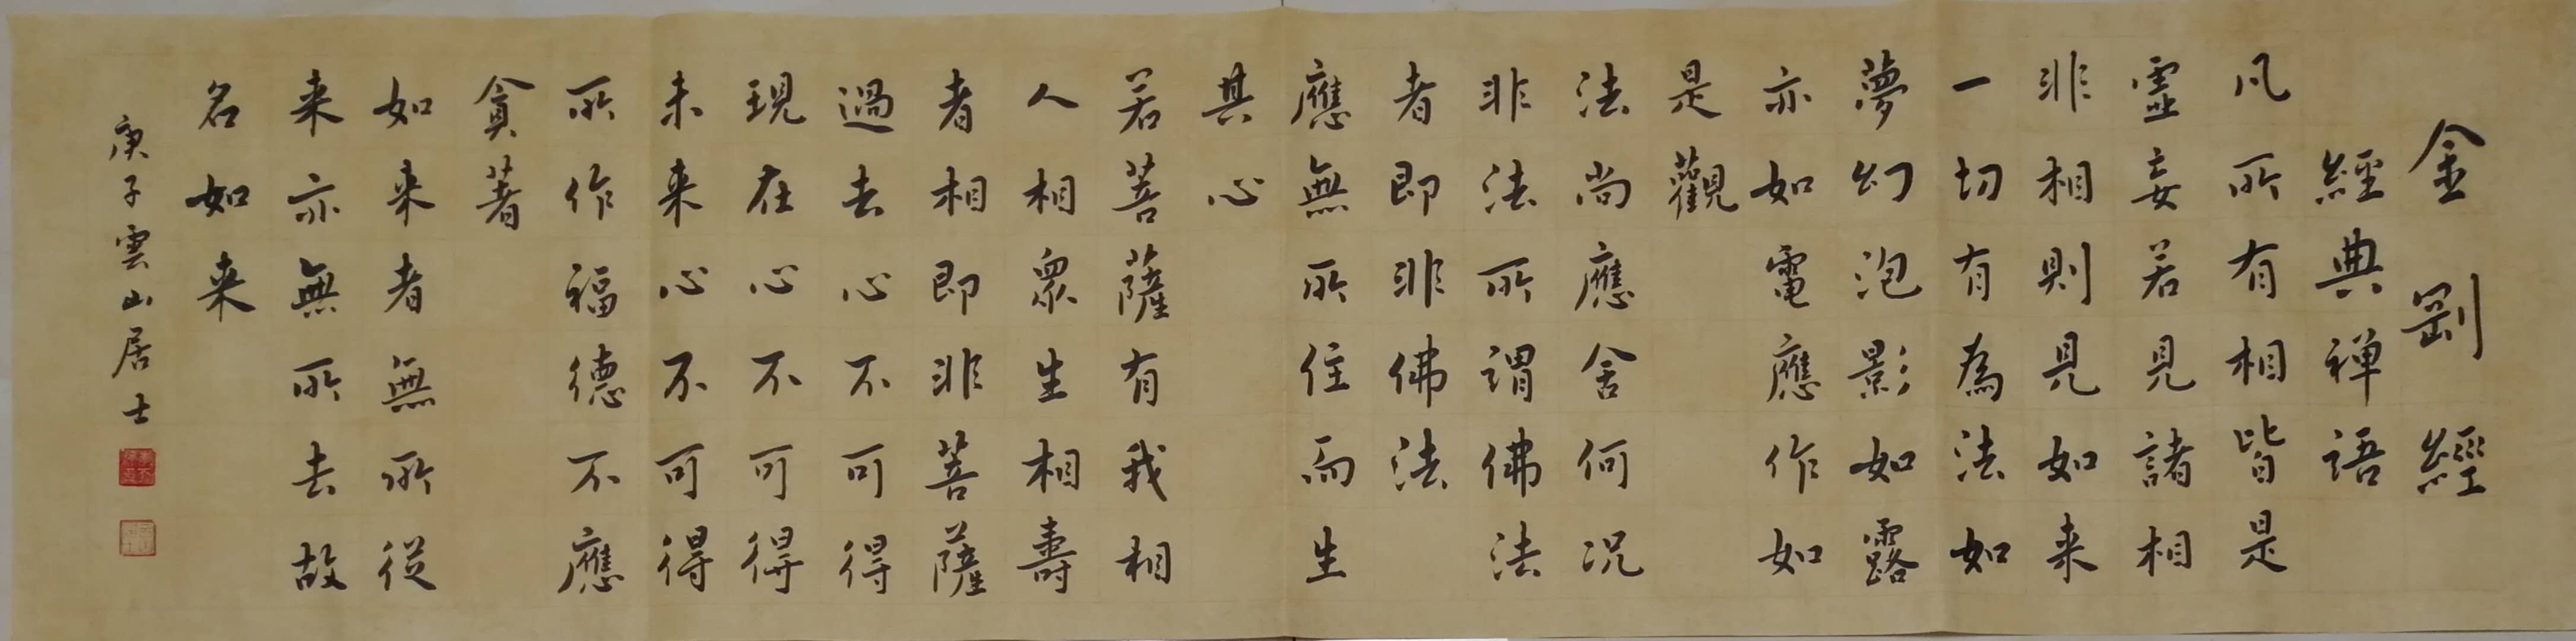 金剛經
經典禅語
凡所有相皆是
虛妄若見諸相
非相則見如来
一切有為法如
夢幻泡影如露
亦如電應作如
是觀
法尚應舍何况
非法所謂佛法
者即非佛法
應無所住而生
其心
若菩薩有我相
人相衆生相壽
者相即非菩薩
過去心不可得
現在心不可得
未来心不可得
所作福德不應
貪著
如来者無所從
来亦無所去故
名如来
庚子雲山居士